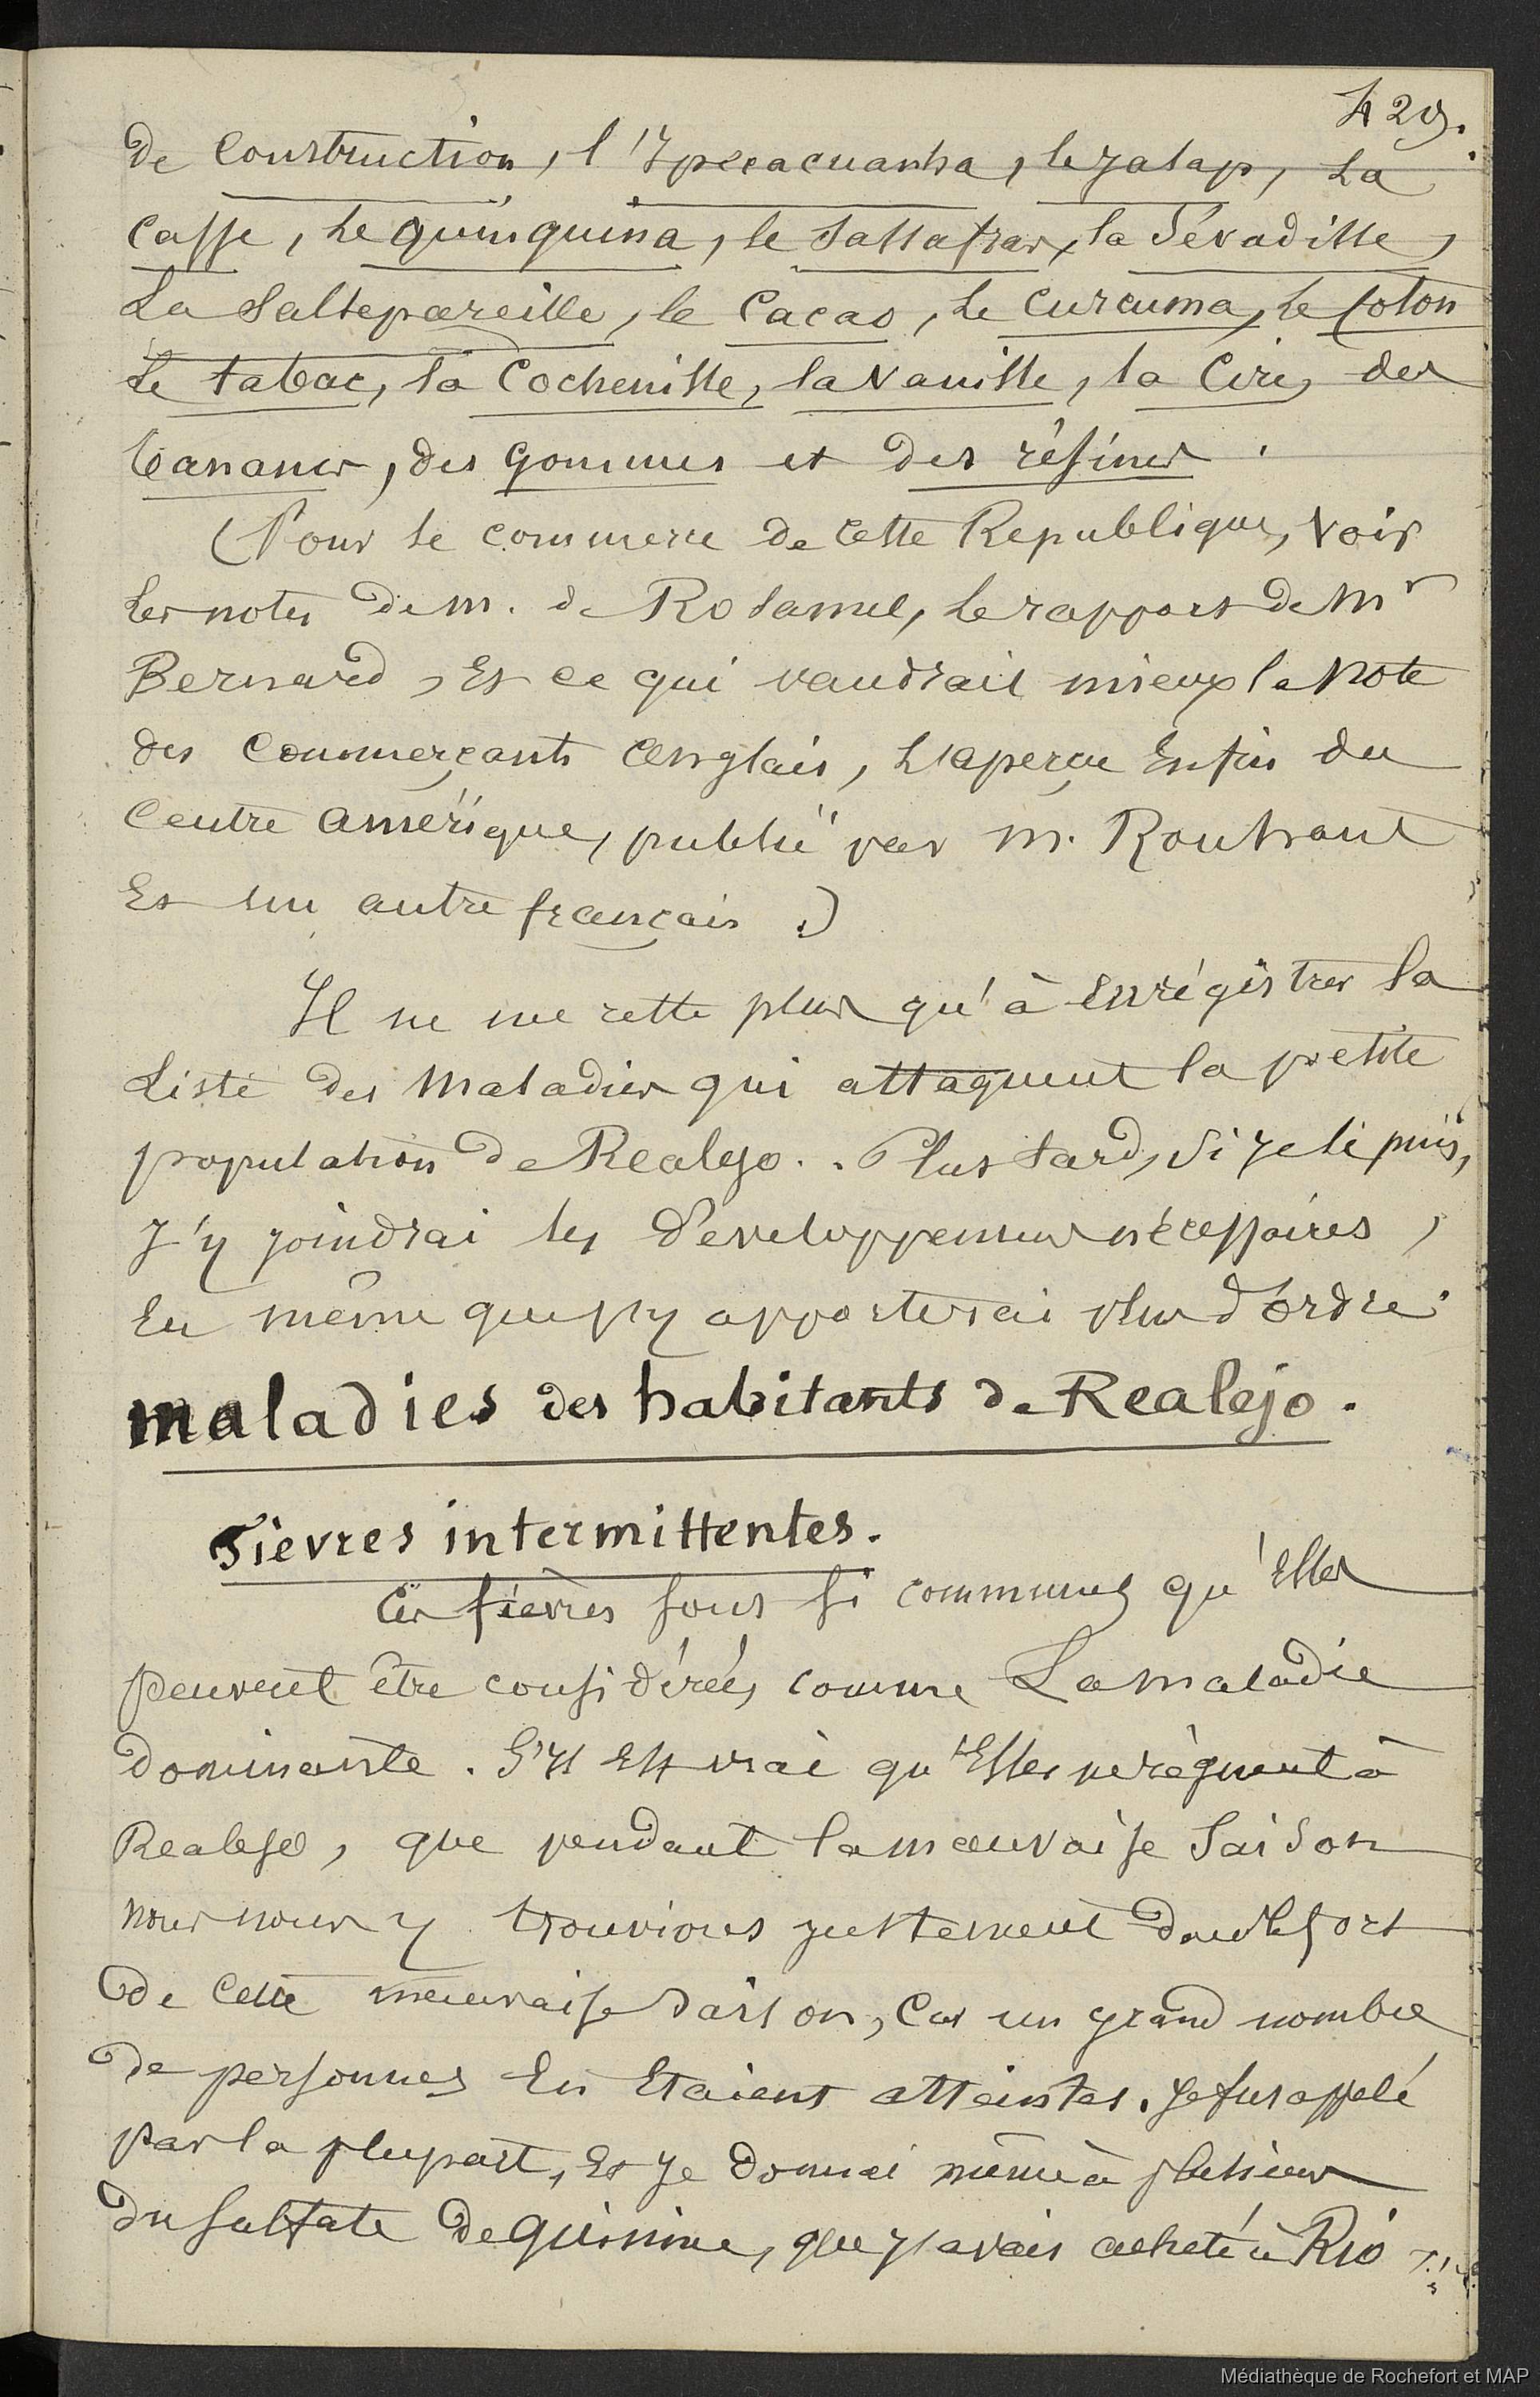 429.
de construction, l'Ypecacuanha, le jalap, La
Casse, Le quinquina, le Sassafras, la Sévadille,
La Salsepareille, le Cacao, Le Curcuma, Le Coton
Le tabac, la Cochenille, la Vanille, la Cire, des
bananes, des gommes et des résines.
(Pour le commerce de cette Republique, voir
Les notes de M. de Rosamel, Le rapport de Mr
Bernard, Et ce qui vaudrait mieux la Note
des Commerçants Anglais, L'aperçu Enfin du
Centre Amérique, publié par M. Rouhaut
Et un autre français.)
Il ne me reste plus qu'à Enrégistrer la
Liste des Maladies qui attaquent la petite
population de Realejo.. Plus tard, Si je le puis,
J'y joindrai les Développemens nécessaires,
En même que j'y apporterai plus d'Ordre.
maladies des habitants de Realejo.
Fievres intermittentes.
Ces fièvres sont si communes qu'Elles
peuvent être considérées comme La maladie
dominante. S'Il Est vrai qu'Elles ne règnent à
Realejo, que pendant la mauvaise Saison
nous nous y trouvions justement dans le fort
de cette mauvaise Saison, Car un grand nombre
de personnes En Etaient atteintes. Je fus appelé
par la plupart, Et Je donnai même à plusieurs
du sulfate de quinine, que j'avais acheté à Rio
Médiathèque de Rochefort et MAP